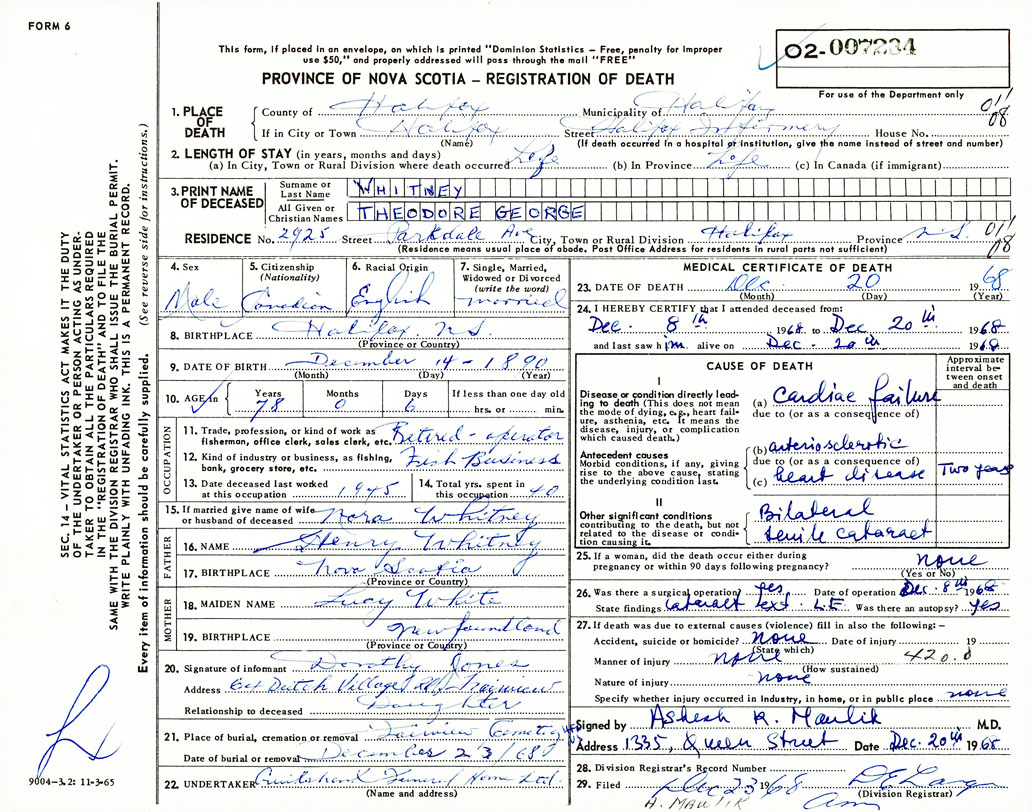 FORM 6
This form, if placed in an envelope, on which is printed "Dominion Statistics – Free, penalty for improper
use $50," and properly addressed will pass through the mail "FREE"
PROVINCE OF NOVA SCOTIA – REGISTRATION OF DEATH
02-007234
For use of the Department only
011
08
1. PLACE OF DEATH
County of Halifax Municipality of Halifax
If in City or Town Halifax Street Halifax Infirmary House No.
(Name) (If death occurred in a hospital or institution, give the name instead of street and number)
2. LENGTH OF STAY (in years, months and days)
(a) In City, Town or Rural Division where death occurred Life (b) In Province Life (c) In Canada (if immigrant)
3. PRINT NAME OF DECEASED
Surname or Last Name WHITNEY
All Given or Christian Names THEODORE GEORGE
RESIDENCE No. 2925 Street Parkdale Ave City, Town or Rural Division Halifax Province N.S.
(Residence means usual place of abode. Post Office Address for residents in rural parts not sufficient)
011
08
4. Sex Male
5. Citizenship (Nationality) Canadian
6. Racial Origin English
7. Single, Married, Widowed or Divorced (write the word) married
8. BIRTHPLACE Halifax, N.S.
(Province or Country)
9. DATE OF BIRTH December 14 - 1890
(Month) (Day) (Year)
10. AGE in Years 78 Months 0 Days 6 If less than one day old hrs. or min.
OCCUPATION
11. Trade, profession, or kind of work as fisherman, office clerk, sales clerk, etc. Retired - operator
12. Kind of industry or business, as fishing, bank, grocery store, etc. Fish Business
13. Date deceased last worked at this occupation 1945
14. Total yrs. spent in this occupation 40
15. If married give name of wife or husband of deceased Nora Whitney
FATHER
16. NAME Henry Whitney
17. BIRTHPLACE Nova Scotia
(Province or Country)
MOTHER
18. MAIDEN NAME Lucy White
19. BIRTHPLACE Newfoundland
(Province or Country)
20. Signature of informant Dorothy Jones
Address Dutch Village Rd. Fairview
Relationship to deceased Daughter
21. Place of burial, cremation or removal Fairview Cemetery
Date of burial or removal December 23/68
22. UNDERTAKER Funeral Home Ltd.
(Name and address)
MEDICAL CERTIFICATE OF DEATH
23. DATE OF DEATH Dec 20 1968
(Month) (Day) (Year)
24. I HEREBY CERTIFY that I attended deceased from:
Dec. 8th 1968 to Dec 20th 1968
and last saw him alive on Dec. 20th 1968
CAUSE OF DEATH
Approximate interval between onset and death
I
Disease or condition directly leading to death (This does not mean the mode of dying, e.g., heart failure, asthenia, etc. It means the disease, injury, or complication which caused death.)
(a) Cardiac failure
due to (or as a consequence of)
Antecedent causes
Morbid conditions, if any, giving rise to the above cause, stating the underlying condition last.
(b) arteriosclerotic
due to (or as a consequence of)
(c) heart disease Two years
II
Other significant conditions contributing to the death, but not related to the disease or condition causing it.
Bilateral
senile cataract
25. If a woman, did the death occur either during pregnancy or within 90 days following pregnancy? none
(Yes or No)
26. Was there a surgical operation? yes Date of operation Dec. 8th 1968
State findings cataract ext. L.E Was there an autopsy? yes
27. If death was due to external causes (violence) fill in also the following: –
Accident, suicide or homicide? none Date of injury 19
(State which)
420.0
Manner of injury none
(How sustained)
Nature of injury none
Specify whether injury occurred in industry, in home, or in public place none
Signed by Ashesh K. Maulik M.D.
Address 1335, Queen Street Date Dec. 20th 1968
28. Division Registrar's Record Number
29. Filed Dec 23 1968
(Division Registrar)
A. MAULIK
SEC. 14 – VITAL STATISTICS ACT MAKES IT THE DUTY
OF THE UNDERTAKER OR PERSON ACTING AS UNDER-
TAKER TO OBTAIN ALL THE PARTICULARS REQUIRED
IN THE "REGISTRATION OF DEATH" AND TO FILE THE
SAME WITH THE DIVISION REGISTRAR WHO SHALL ISSUE THE BURIAL PERMIT.
WRITE PLAINLY WITH UNFADING INK. THIS IS A PERMANENT RECORD.
Every item of information should be carefully supplied. (See reverse side for instructions.)
9004-3.2: 11-3-65